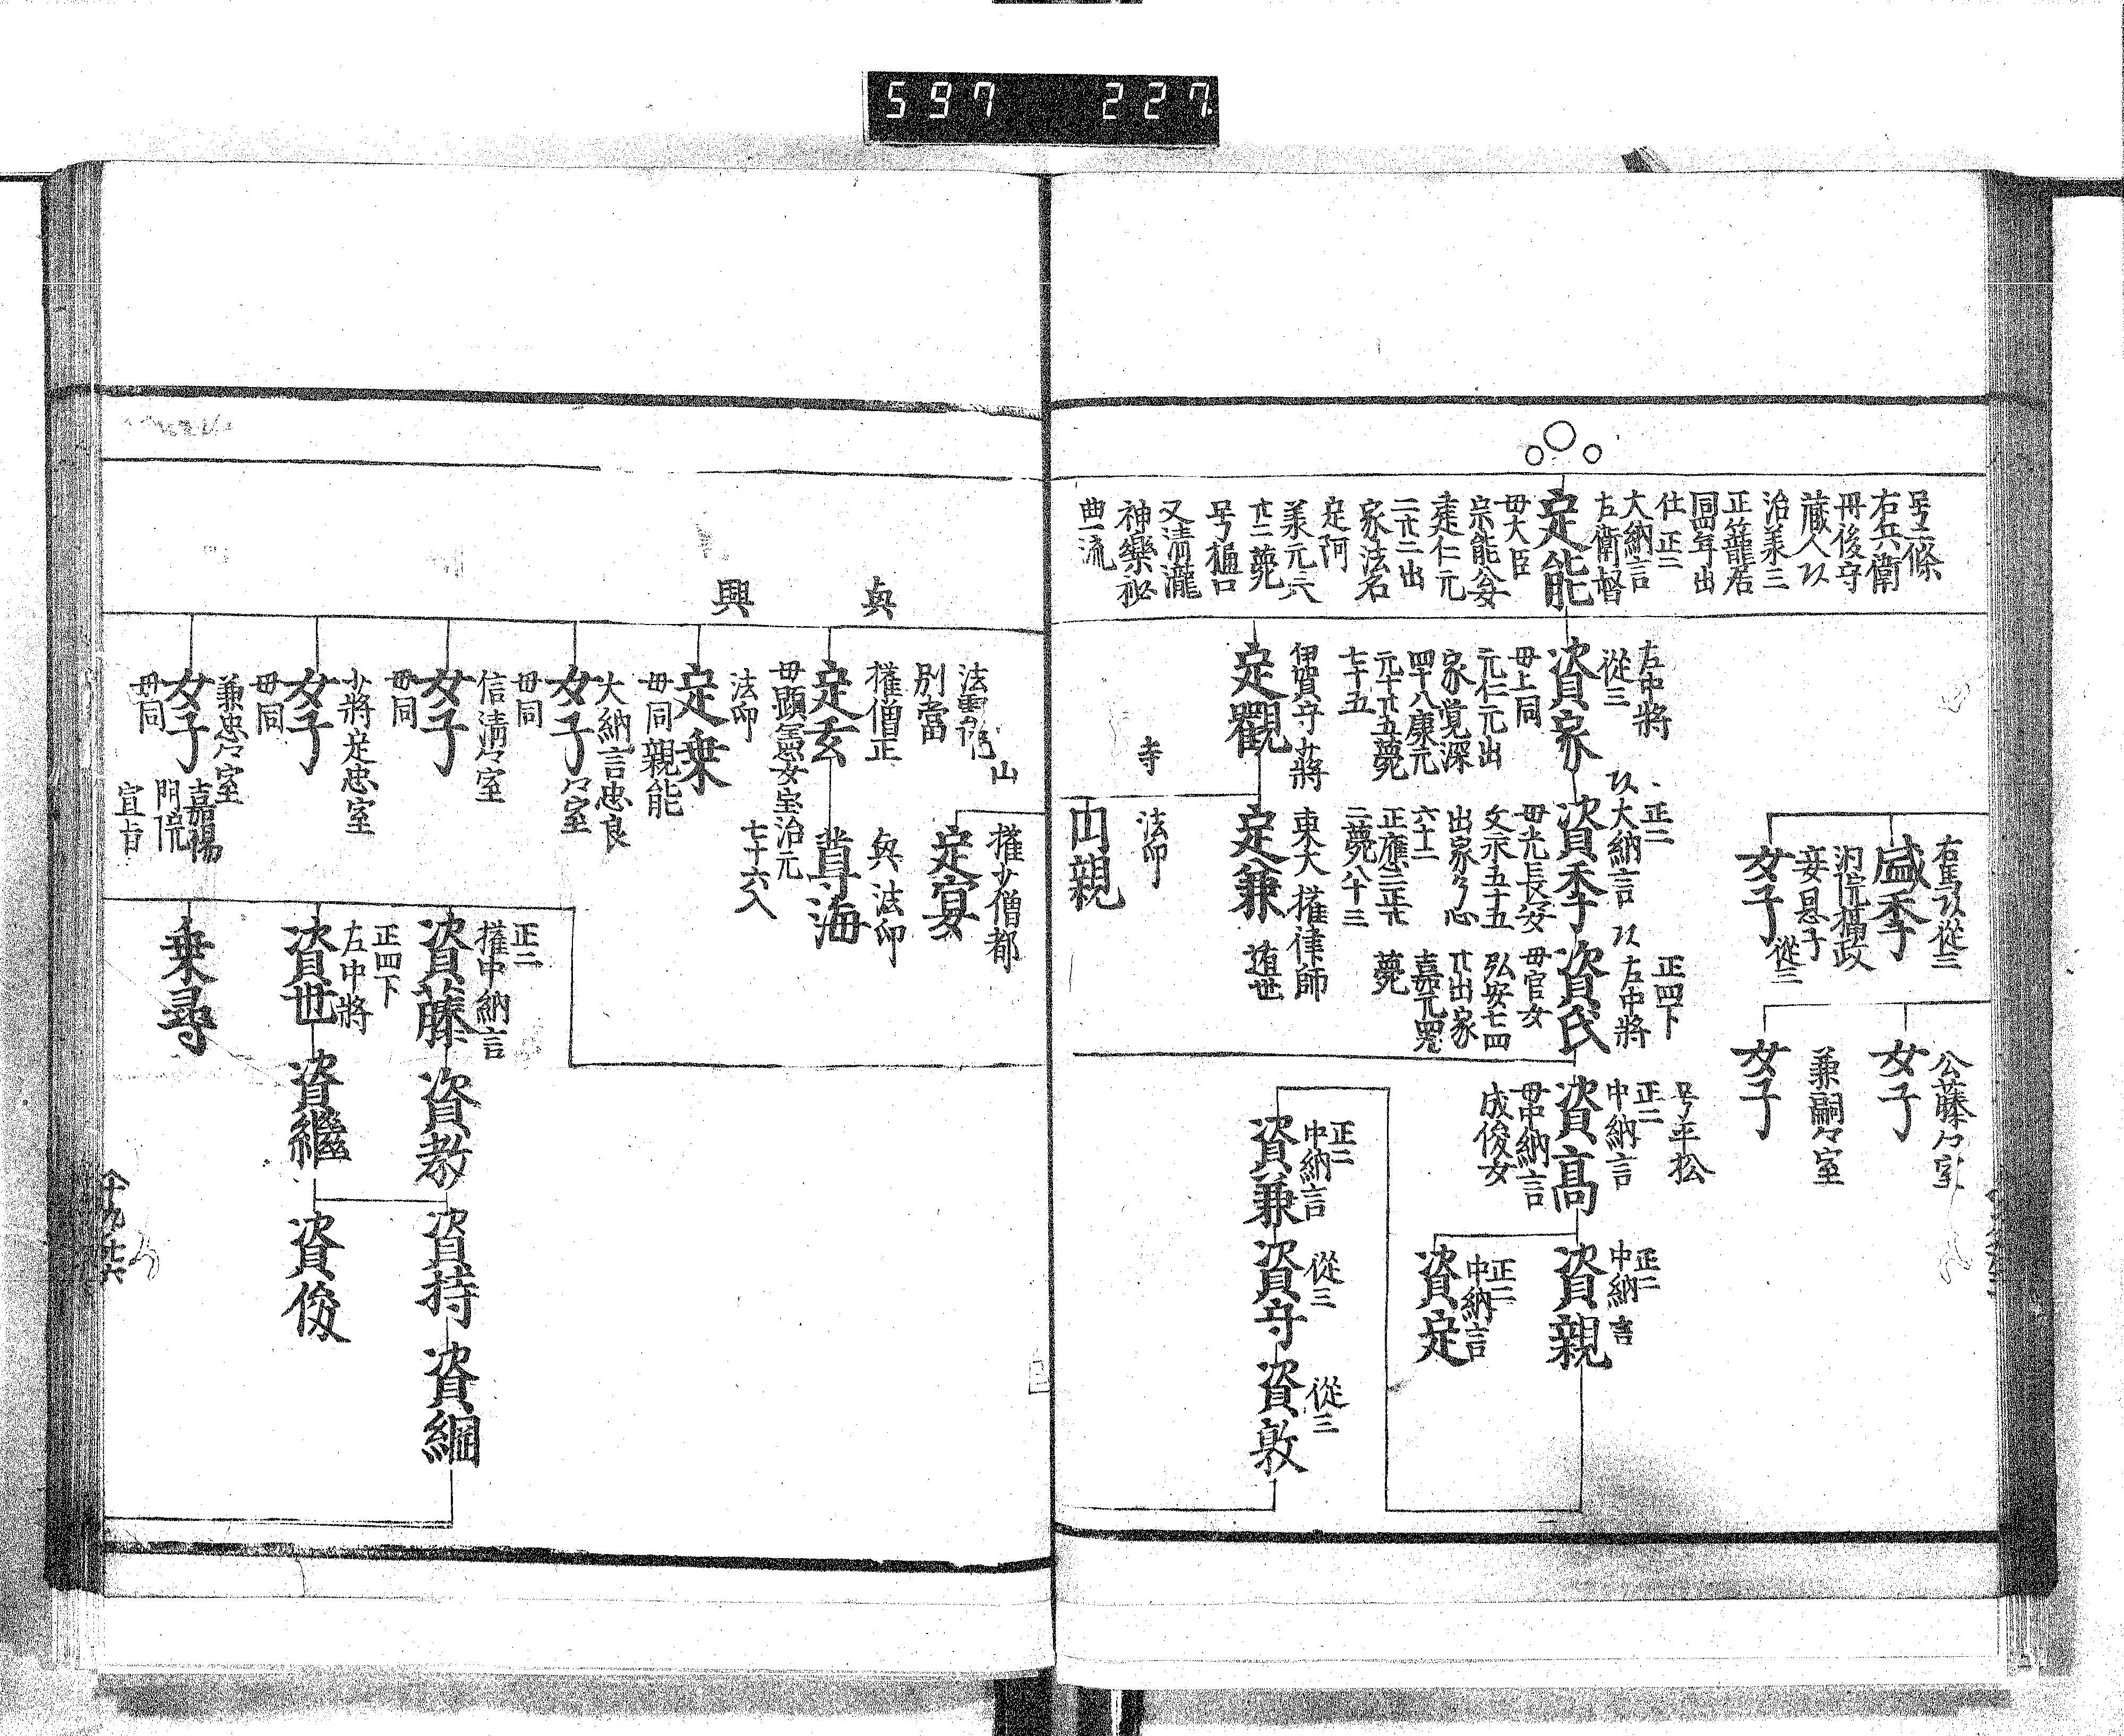 597 227
号二條
右兵衛
丹後守
蔵人以
治羕三
正籠居
同四年出
仕正二
大納言
左衛督
定能
母大臣
宗能公女
建仁元
二廿二出
家法名
定阿
羕元六
廿二薨
号樋口
又清瀧
神樂秘
曲一流
左中將
從三
資家
母上同
元仁元出
家覚深
四十八康元
元十廿五薨
七十五
伊賀守少將
定觀
寺
法印
円親
正二
以大納言
資季
母光長女
文永五十五
出家了心
六十二
正應二正廿
二薨八十三
東大 權律師
定兼
遁世
正四下
以左中將
資氏
母官女
弘安七四
廿出家
薨
右馬以從三
盛季
女子
從三
公藤公室
女子
兼嗣公室
女子
号平松
正二
中納言
資高
母中納言
成俊女
正二
中納言
資親
正二
中納言
資定
正二
中納言
資兼
從三
資守
從三
資敦
山
權少僧都
定宴
別當
權僧正
定玄
母顕憲女宝治元
七十六入
興
法印
尊海
興
法印
定乗
母同親能
大納言忠良
公室
女子
母同
信清公室
女子
母同
少將定忠室
女子
母同
兼忠公室
女子
母同
嘉陽
門院
宣旨
正二
權中納言
資藤
資教
資持
資綱
正四下
左中將
資世
資継
資俊
乗尋